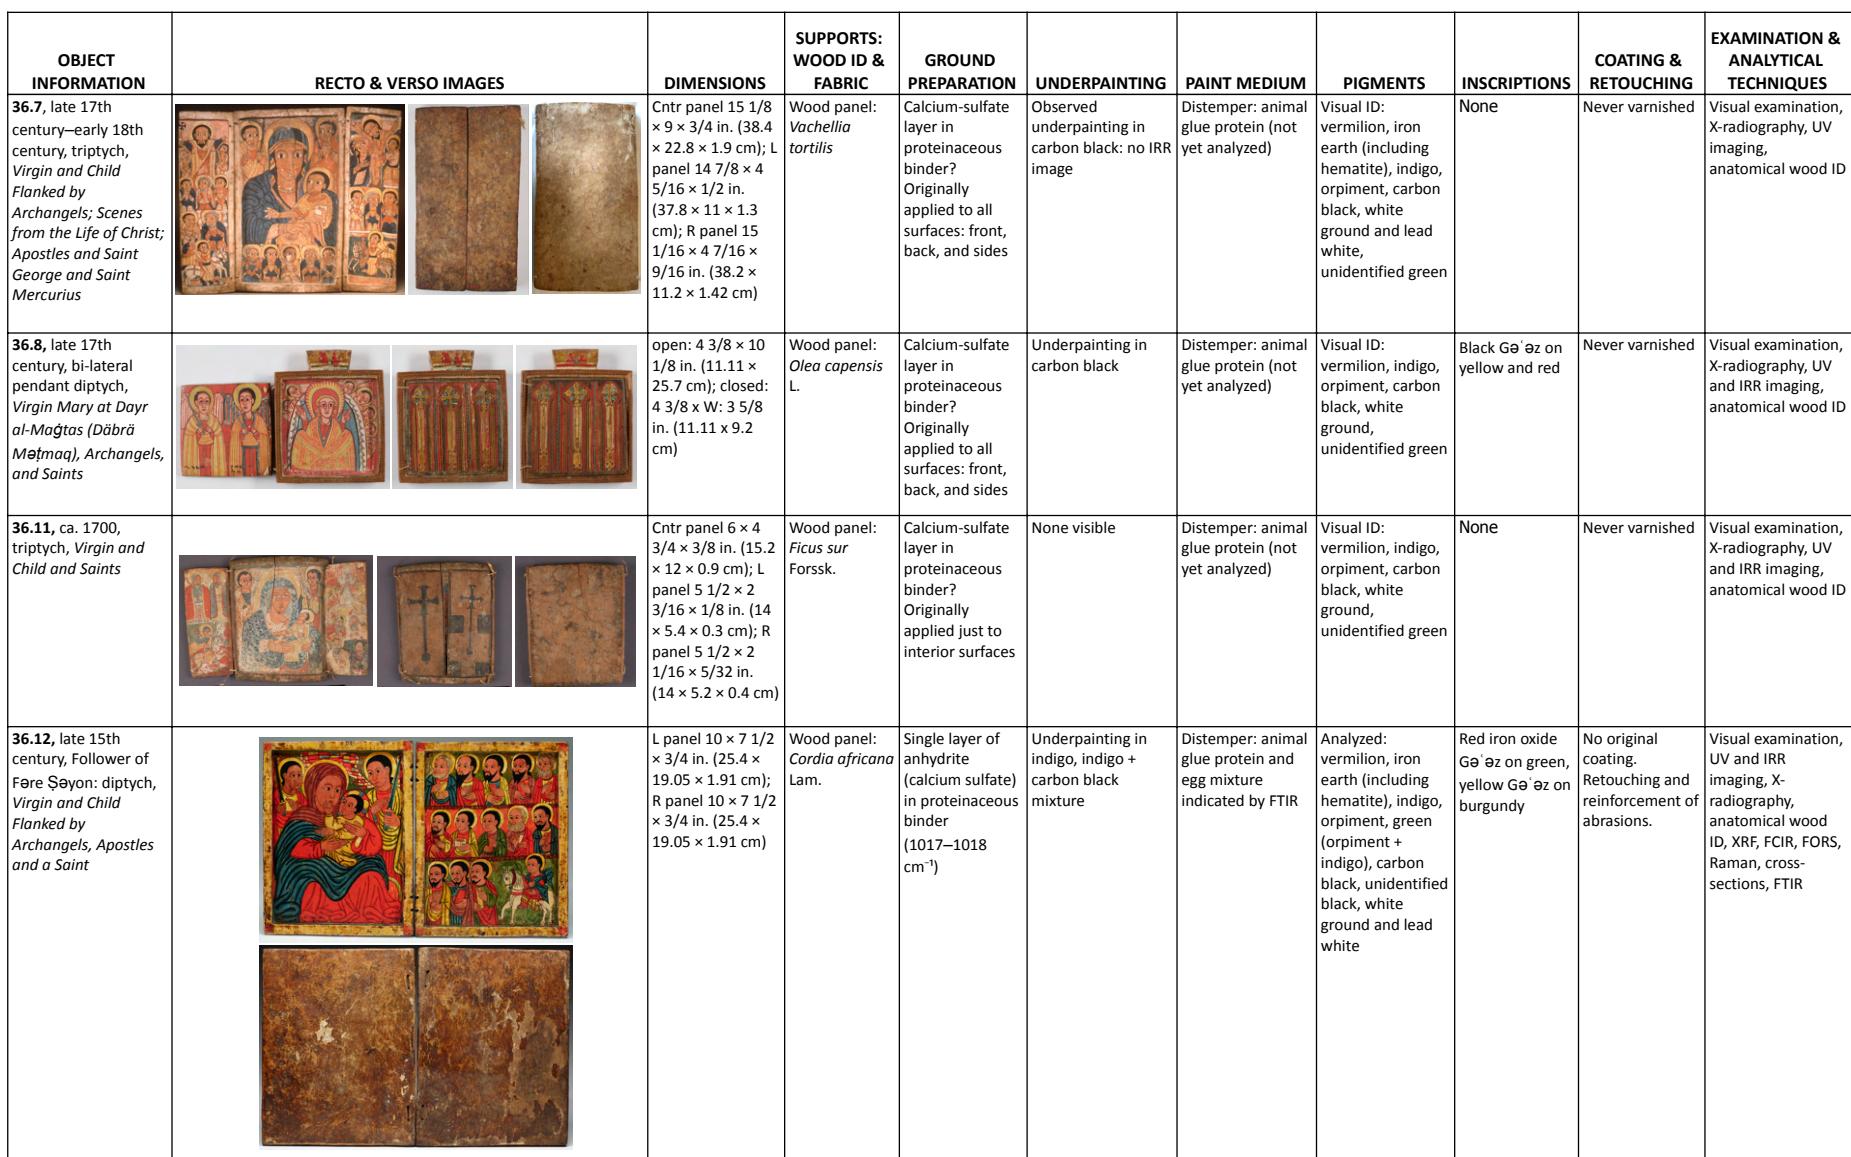 OBJECT
INFORMATION
RECTO & VERSO IMAGES
DIMENSIONS
SUPPORTS:
WOOD ID &
FABRIC
GROUND
PREPARATION
UNDERPAINTING
PAINT MEDIUM
PIGMENTS
INSCRIPTIONS
COATING &
RETOUCHING
EXAMINATION &
ANALYTICAL
TECHNIQUES
36.7, late 17th
century–early 18th
century, triptych,
Virgin and Child
Flanked by
Archangels; Scenes
from the Life of Christ;
Apostles and Saint
George and Saint
Mercurius
Cntr panel 15 1/8
× 9 × 3/4 in. (38.4
× 22.8 × 1.9 cm); L
panel 14 7/8 × 4
5/16 × 1/2 in.
(37.8 × 11 × 1.3
cm); R panel 15
1/16 × 4 7/16 ×
9/16 in. (38.2 ×
11.2 × 1.42 cm)
Wood panel:
Vachellia
tortilis
Calcium-sulfate
layer in
proteinaceous
binder?
Originally
applied to all
surfaces: front,
back, and sides
Observed
underpainting in
carbon black: no IRR
image
Distemper: animal
glue protein (not
yet analyzed)
Visual ID:
vermilion, iron
earth (including
hematite), indigo,
orpiment, carbon
black, white
ground and lead
white,
unidentified green
None
Never varnished
Visual examination,
X-radiography, UV
imaging,
anatomical wood ID
36.8, late 17th
century, bi-lateral
pendant diptych,
Virgin Mary at Dayr
al-Maġtas (Däbrä
Məṭmaq), Archangels,
and Saints
open: 4 3/8 × 10
1/8 in. (11.11 ×
25.7 cm); closed:
4 3/8 x W: 3 5/8
in. (11.11 x 9.2
cm)
Wood panel:
Olea capensis
L.
Calcium-sulfate
layer in
proteinaceous
binder?
Originally
applied to all
surfaces: front,
back, and sides
Underpainting in
carbon black
Distemper: animal
glue protein (not
yet analyzed)
Visual ID:
vermilion, indigo,
orpiment, carbon
black, white
ground,
unidentified green
Black Gəʿəz on
yellow and red
Never varnished
Visual examination,
X-radiography, UV
and IRR imaging,
anatomical wood ID
36.11, ca. 1700,
triptych, Virgin and
Child and Saints
Cntr panel 6 × 4
3/4 × 3/8 in. (15.2
× 12 × 0.9 cm); L
panel 5 1/2 × 2
3/16 × 1/8 in. (14
× 5.4 × 0.3 cm); R
panel 5 1/2 × 2
1/16 × 5/32 in.
(14 × 5.2 × 0.4 cm)
Wood panel:
Ficus sur
Forssk.
Calcium-sulfate
layer in
proteinaceous
binder?
Originally
applied just to
interior surfaces
None visible
Distemper: animal
glue protein (not
yet analyzed)
Visual ID:
vermilion, indigo,
orpiment, carbon
black, white
ground,
unidentified green
None
Never varnished
Visual examination,
X-radiography, UV
and IRR imaging,
anatomical wood ID
36.12, late 15th
century, Follower of
Fəre Ṣəyon: diptych,
Virgin and Child
Flanked by
Archangels, Apostles
and a Saint
L panel 10 × 7 1/2
× 3/4 in. (25.4 ×
19.05 × 1.91 cm);
R panel 10 × 7 1/2
× 3/4 in. (25.4 ×
19.05 × 1.91 cm)
Wood panel:
Cordia africana
Lam.
Single layer of
anhydrite
(calcium sulfate)
in proteinaceous
binder
(1017–1018
cm⁻¹)
Underpainting in
indigo, indigo +
carbon black
mixture
Distemper: animal
glue protein and
egg mixture
indicated by FTIR
Analyzed:
vermilion, iron
earth (including
hematite), indigo,
orpiment, green
(orpiment +
indigo), carbon
black, unidentified
black, white
ground and lead
white
Red iron oxide
Gəʿəz on green,
yellow Gəʿəz on
burgundy
No original
coating.
Retouching and
reinforcement of
abrasions.
Visual examination,
UV and IRR
imaging, X-
radiography,
anatomical wood
ID, XRF, FCIR, FORS,
Raman, cross-
sections, FTIR